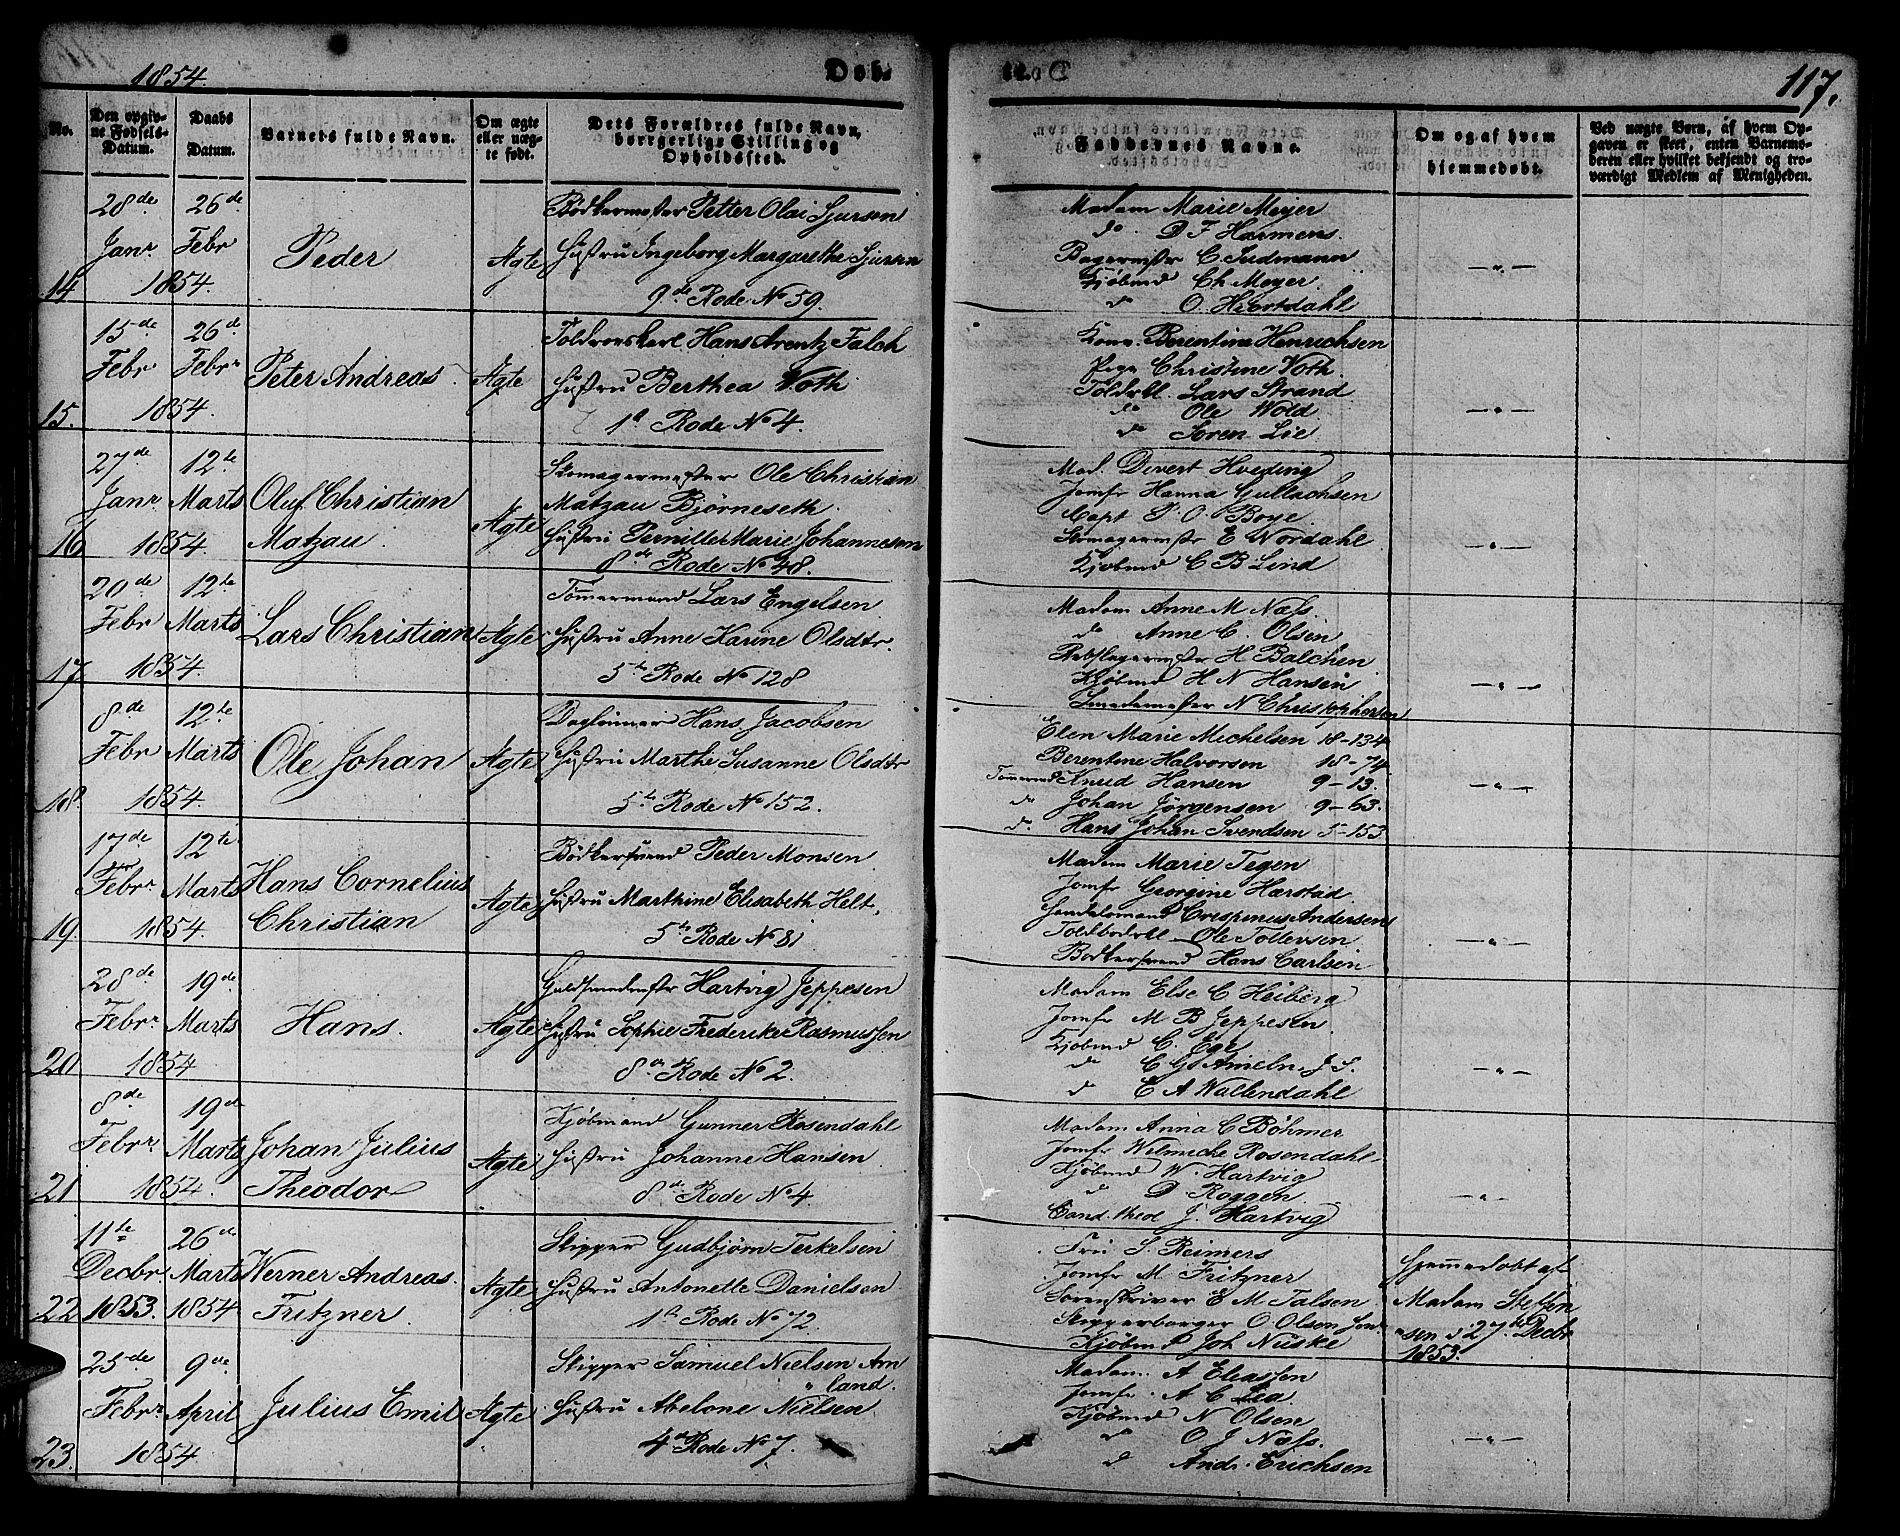 1854.
Døb.
117.
No.
Den opgivne Fødsels-Datum.
Daabs Datum.
Barnets fulde Navn.
Om ægte eller uægte født.
Dets Forældres fulde Navn, borgerlige Stilling og Opholdssted.
Faddernes Navne.
Om og af hvem hjemmedøbt.
Ved uægte Børn, af hvem Opgaven er skeet, enten Barnemoderen eller hvilket bekjendt og troværdigt Medlem af Menigheden.
14
28de Janr 1854.
26de Febr
Peder
Ægte
Bødkermester Petter Olai Sjursen
Hustru Ingeborg Margarethe Sjursen
9de Rode No 59.
Madam Marie Meyer
do D F Harmens.
Bagermstr C. Sudmann
Kjøbmd Ch Meyer.
do O. Hiortdahl
—"—
15.
15de Febr 1854.
26de Febr
Peter Andreas
Ægte
Toldrorskarl Hans Arentz Falch
Hustru Berthea Voth
1ste Rode No 4.
Kone Berentine Henrichsen
Pige Christine Voth.
Toldrkl. Lars Strand
do Ole Wold
do Søren Lie
—"—
16
27de Janr 1854.
12te Marts
Oluf Christian
Matzau
Ægte
Skomagermester Ole Christian
Matzau Bjørneseth.
Hustru Pernille Marie Johannesen
8de Rode No 48.
Mad. Divert Hveding
Jomfr Hanna Gullachsen
Capt P. O. Boye
Skomagermstr E Wordahl
Kjøbmd C B Lind
—"—
17
20de Febr 1854.
12te Marts
Lars Christian
Ægte
Tømmermand Lars Engelsen
Hustru Anne Karine Olsdtr.
5te Rode No 128
Madam Anne M Næss.
do Anne C. Olsen
Rebslagermstr H Balchen
Kjøbmd H N Hansen
Smedemester N Christophersen
—"—
18
8de Febr 1854.
12te Marts
Ole Johan
Ægte
Dagleinner Hans Jacobsen
Hustru Marthe Susanne Olsdtr
5te Rode No 152.
Elen Marie Michelsen 18-134
Berentine Halvorsen 18-74
Tømmermd Knud Hansen 9-13.
do Johan Jørgensen 9-63.
do Hans Johan Svendsen 5-153
—"—
19.
17de Febr 1854.
12te Marts
Hans Cornelius
Christian
Ægte
Bødkersvend Peder Monsen
Hustru Marthine Elisabeth Helt.
5te Rode No 81
Madam Marie Tegen
Jomfr Georgine Harstad
Handelsmand Crispinus Andersen
Toldbodkl Ole Tollevsen
Bødkersvend Hans Carlsen
—"—
20
28de Febr. 1854
19de Marts
Hans.
Ægte
Guldsmedmstr Hartvig Jeppesen
Hustru Sophie Frederike Rasmussen
8de Rode No 2.
Madam Else C Heiberg
Jomfr M B Jeppesen
Kjøbmd C. Ege
do C G Ameln J S.
do C A Wallendahl
—"—
21
8de Febr. 1854.
19de Marts
Johan Julius
Theodor
Ægte
Kjøbmand Gunner Rosendahl
Hustru Johanne Hansen
8de Rode No 4.
Madam Anna C Bøhmer
Jomfr Wilmiche Rosendahl
Kjøbmd W. Hartvig
do D Roggen
Cand. theol J. Hartvig
—"—
22
11te Decbr 1853.
26de Marts 1854
Werner Andreas
Fritzner
Ægte
Skipper Gudbjørn Terkelsen
Hustru Antonette Danielsen
1ste Rode No 72
Fru S. Reimers
Jomfr M Fritzner
Sorenskriver E M Falsen
Skipperborger O Olsen Senr
Kjøbmd Joh Nüske
Hjemmedøbt af
Madam Steffen
sen d 27de Decbr
1853.
23.
25de Febr. 1854.
9de April
Julius Emil
Ægte
Skipper Samuel Nielsen Arn
land.
Hustru Abelone Nielsen
4de Rode No 7.
Madam A Eleassen
Jomfr. A C Lea
Kjøbmd N Olsen
do O J Næss.
do Andr. Erichsen
—"—